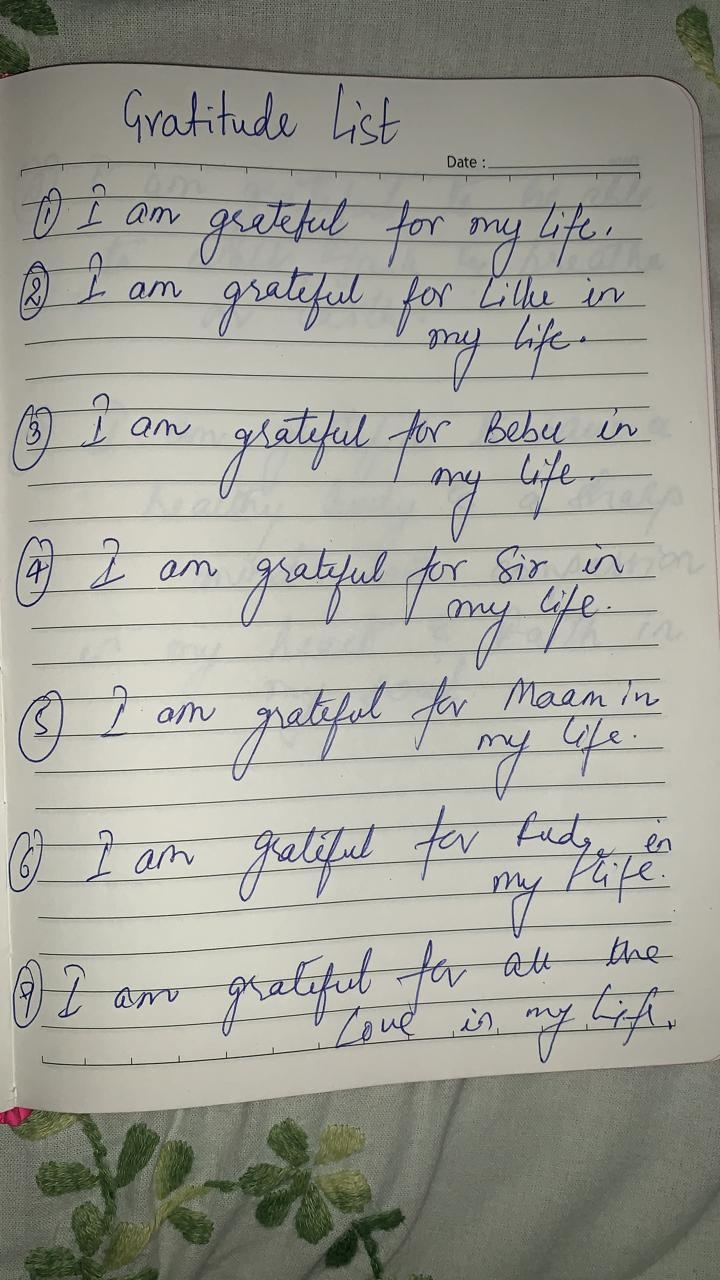 Gratitude List
Date :
① I am grateful for my life.
② I am grateful for Lillie in
my life.
③ I am grateful for Bebu in
my life.
④ I am grateful for Sir in
my life.
⑤ I am grateful for Maam in
my life.
⑥ I am grateful for in
my life.
⑦ I am grateful for all the
Love in my life.